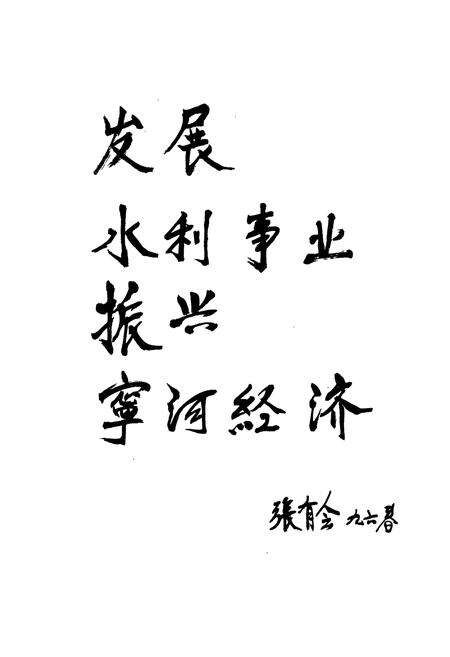 发展
水利事业
振兴
寧河經济
張有会 九六春